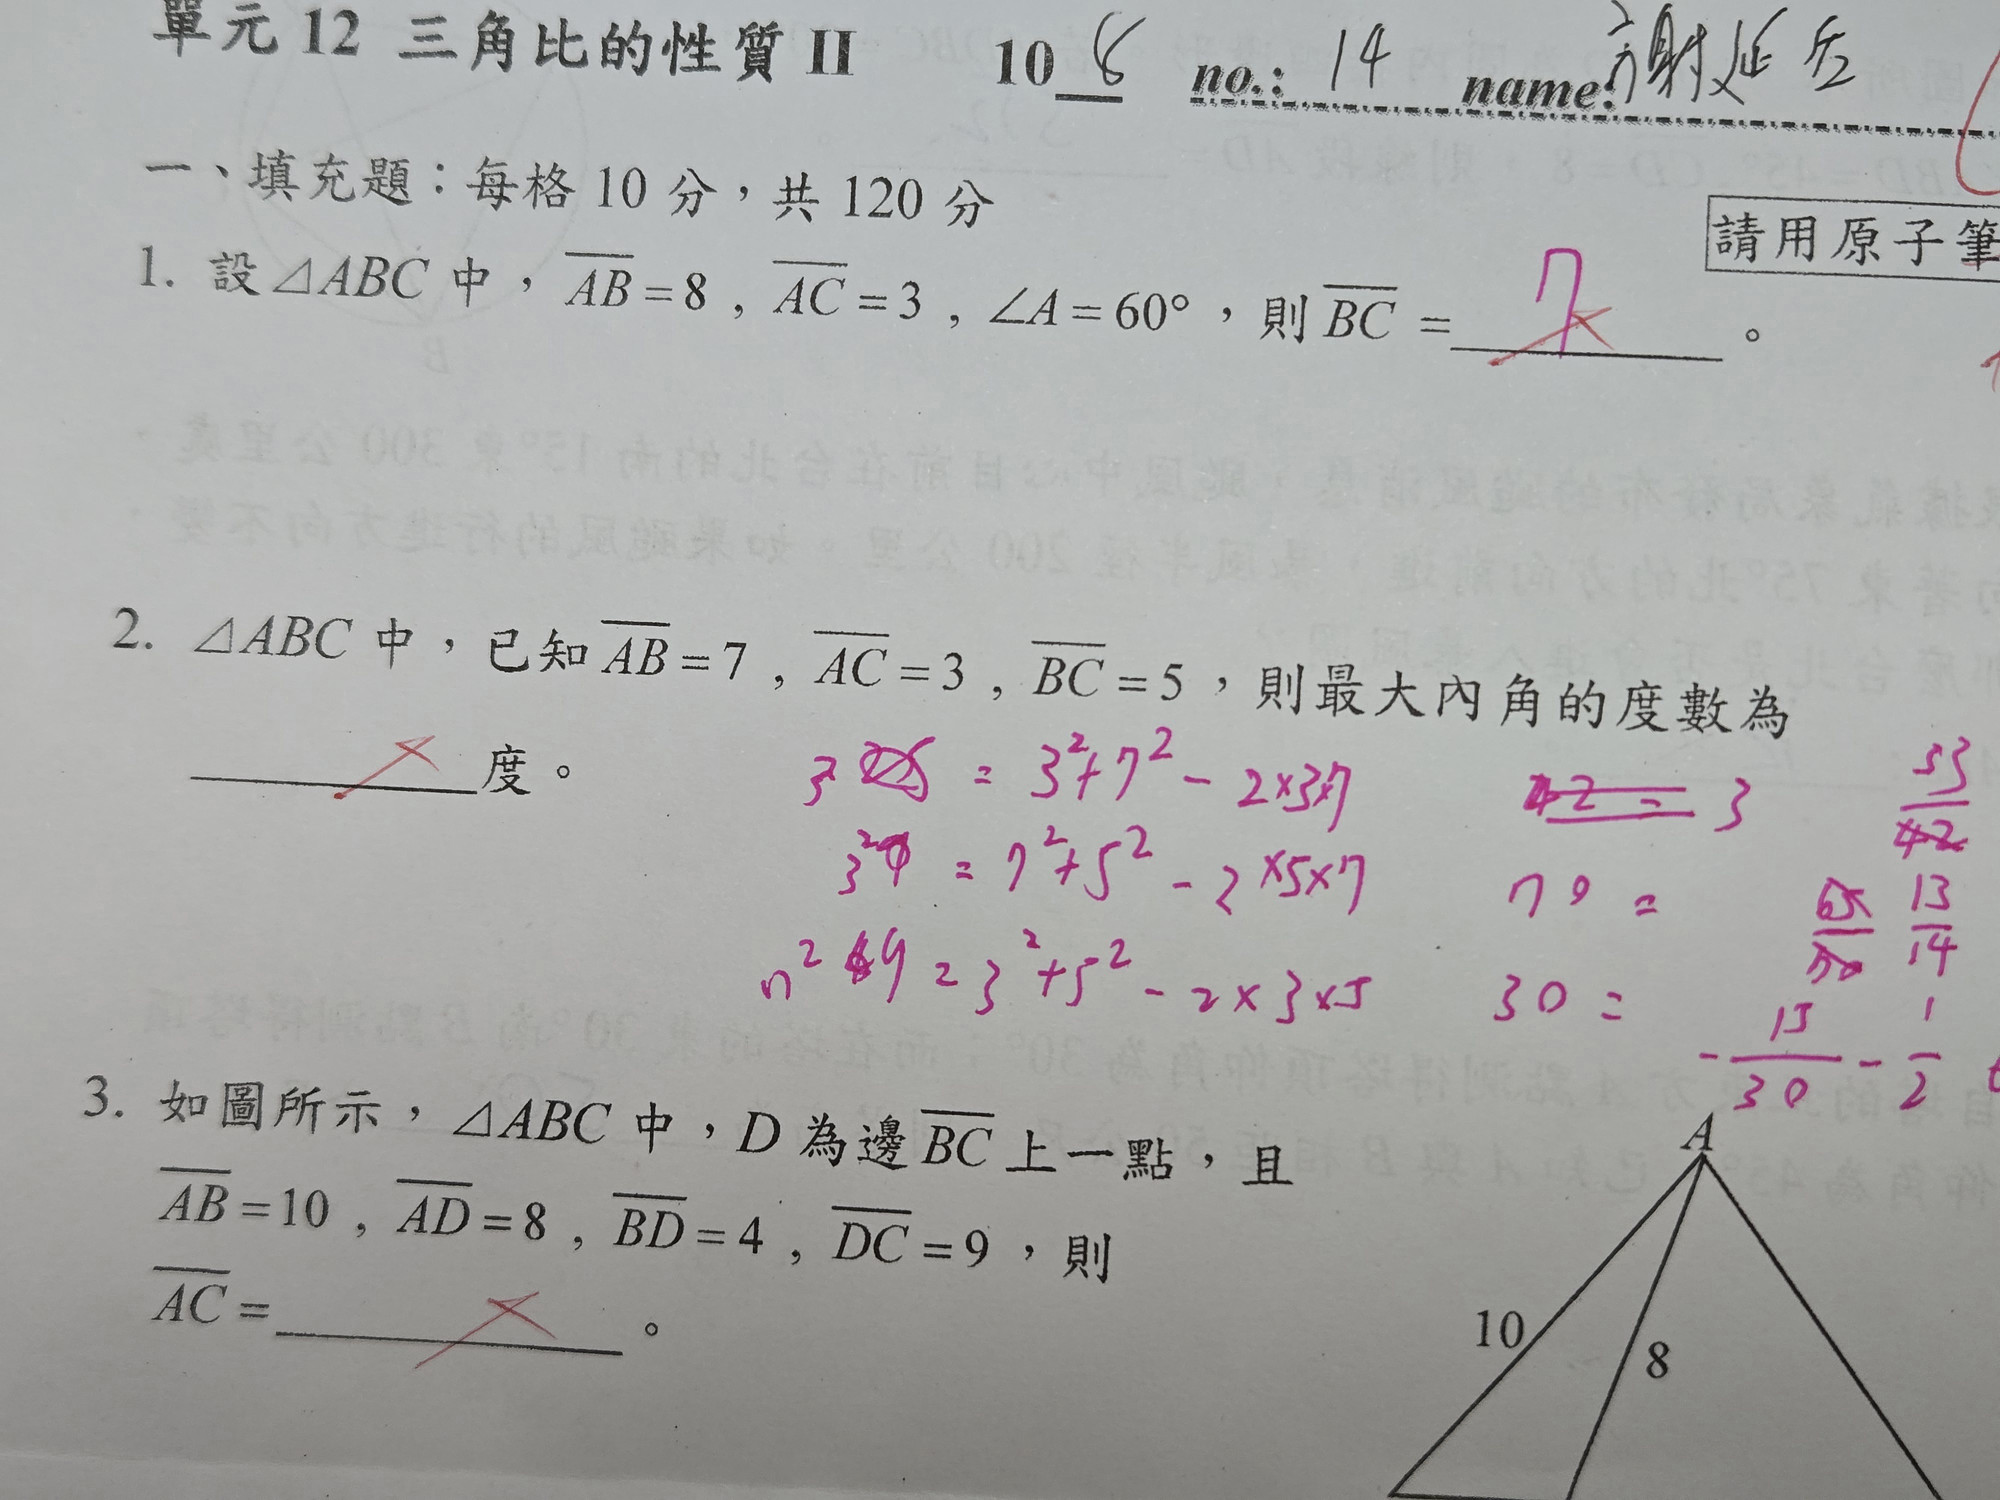 單元 12 三角比的性質 II 10 8 no.: 14 name: 謝延
一、填充題：每格 10 分，共 120 分
請用原子筆
1. 設△ABC 中，AB=8，AC=3，∠A=60°，則BC = 7 。
2. △ABC 中，已知AB=7，AC=3，BC=5，則最大內角的度數為
度。
3 = 3²+7² - 2×3×7 42 = 3 53/42
3² = 7²+5² - 2×5×7 70 = 65/70 13/14
7² 49 = 3²+5² - 2×3×5 30 = -15/30 -1/2
3. 如圖所示，△ABC 中，D 為邊BC 上一點，且
AB=10，AD=8，BD=4，DC=9，則
AC= 。
A
10
8